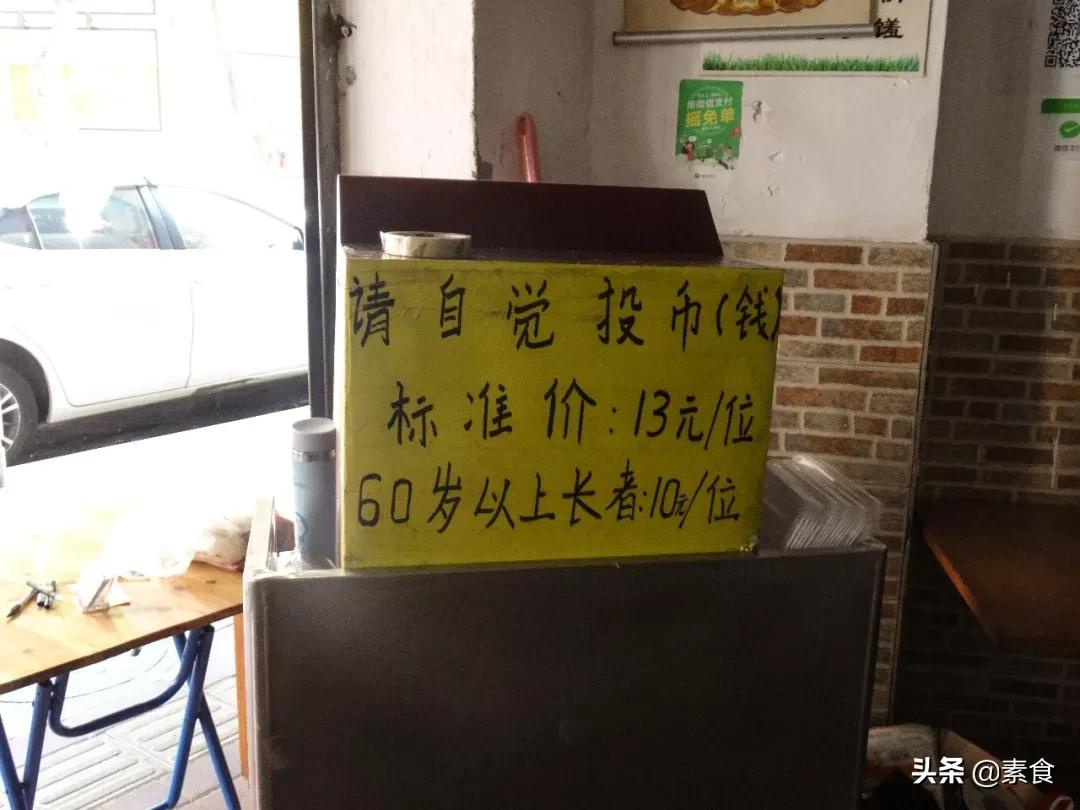 馐
用微信支付
摇免单
请自觉投币(钱)
标准价:13元/位
60岁以上长者:10元/位
头条 @素食